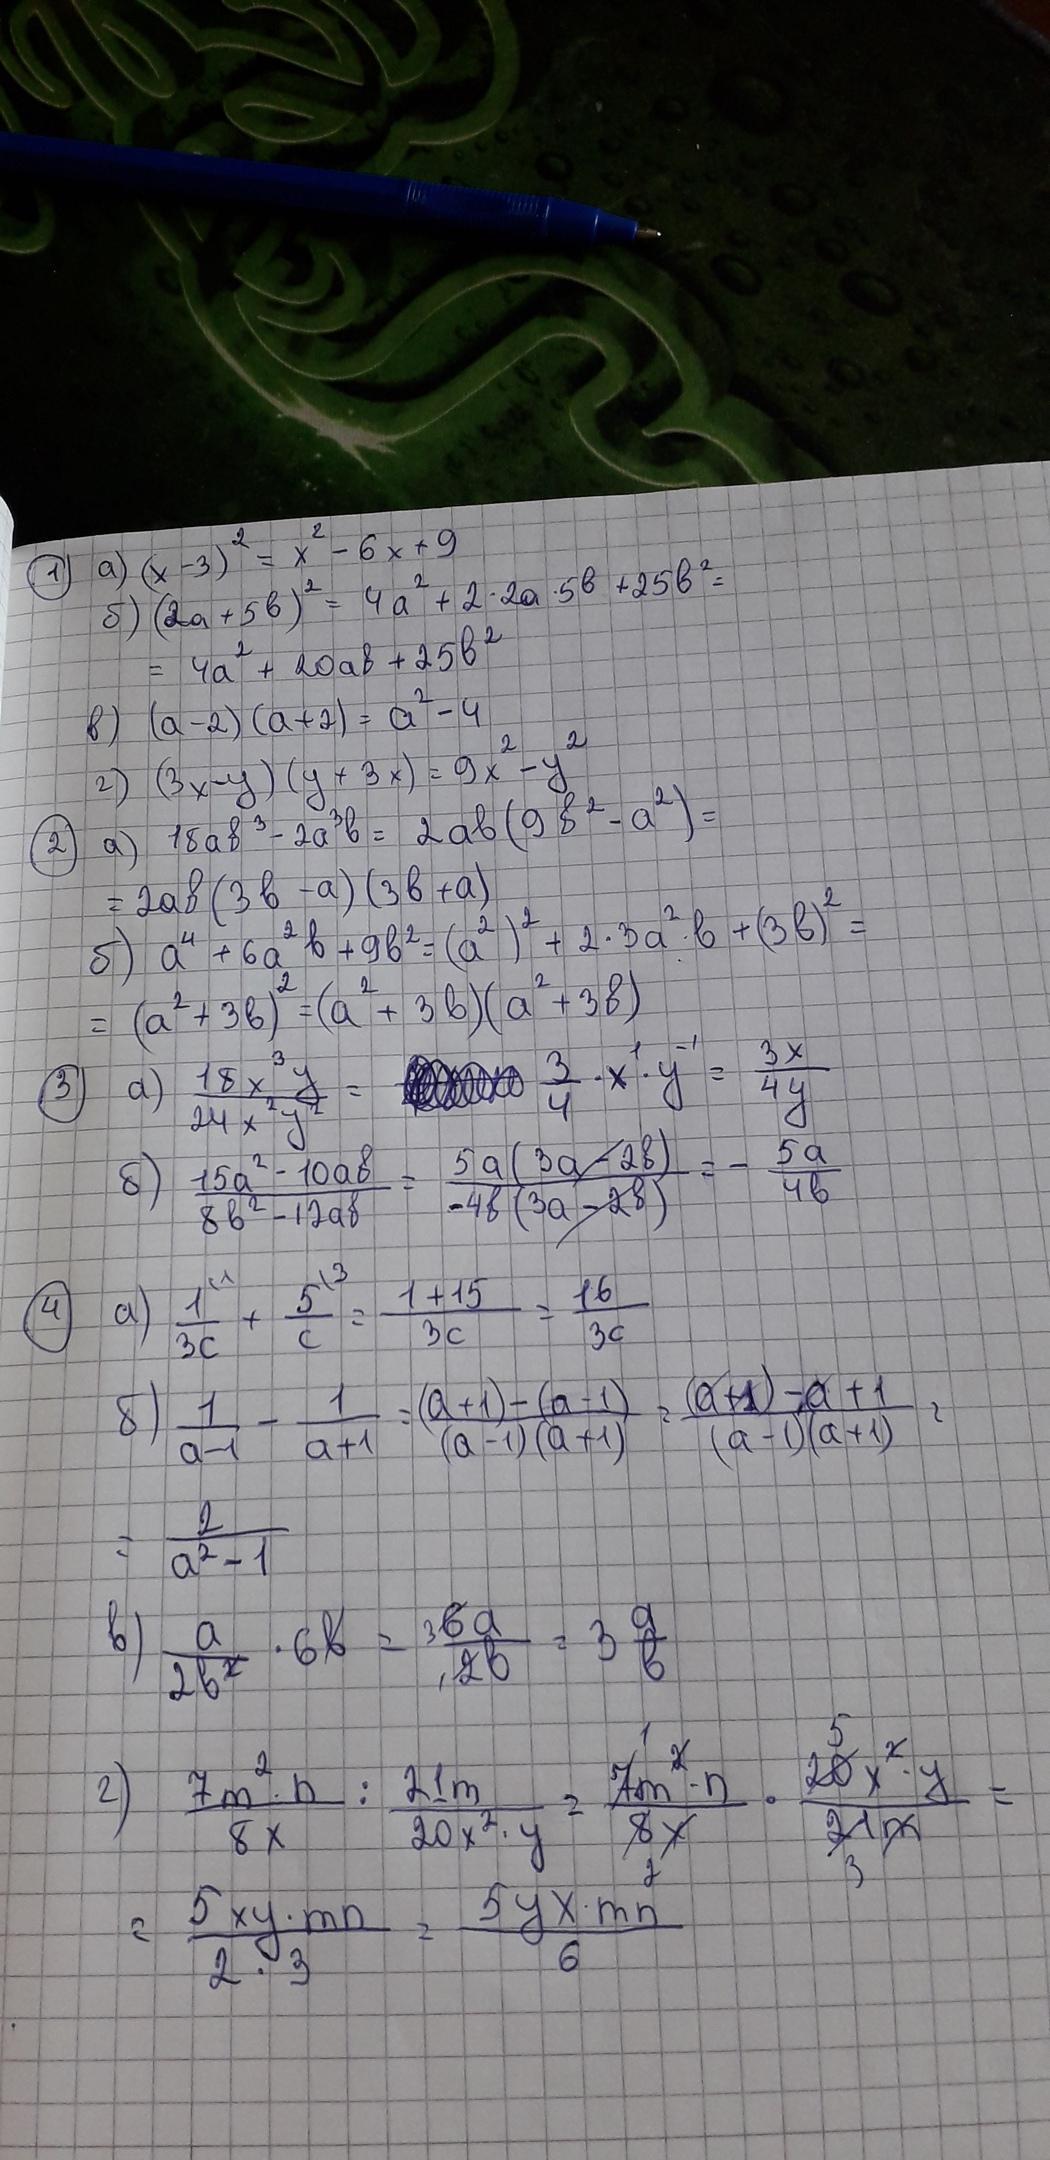 1) а) (x-3)² = x² - 6x + 9
б) (2a+5b)² = 4a² + 2·2a·5b + 25b² =
= 4a² + 20ab + 25b²
в) (a-2)(a+2) = a² - 4
г) (3x-y)(y+3x) = 9x² - y²
2) а) 18ab³ - 2a³b = 2ab(9b² - a²) =
= 2ab(3b-a)(3b+a)
б) a⁴ + 6a²b + 9b² = (a²)² + 2·3a²·b + (3b)² =
= (a²+3b)² = (a²+3b)(a²+3b)
3) а) 18x³y / 24x²y² = 3/4 · x¹ · y⁻¹ = 3x / 4y
б) 15a² - 10ab / 8b² - 12ab = 5a(3a-2b) / -4b(3a-2b) = - 5a / 4b
4) а) 1\¹ / 3c + 5\³ / c = 1+15 / 3c = 16 / 3c
б) 1 / a-1 - 1 / a+1 = (a+1)-(a-1) / (a-1)(a+1) = (a+1)-a+1 / (a-1)(a+1) =
= 2 / a²-1
в) a / 2b² · 6b = 3 6a / 1 2b = 3 a/b
г) 7m²·n / 8x : 21m / 20x²·y = 1 7m²·n / 8x 2 · 5 20x²·y / 21m 3 =
= 5xy·mn / 2·3 = 5yx·mn / 6